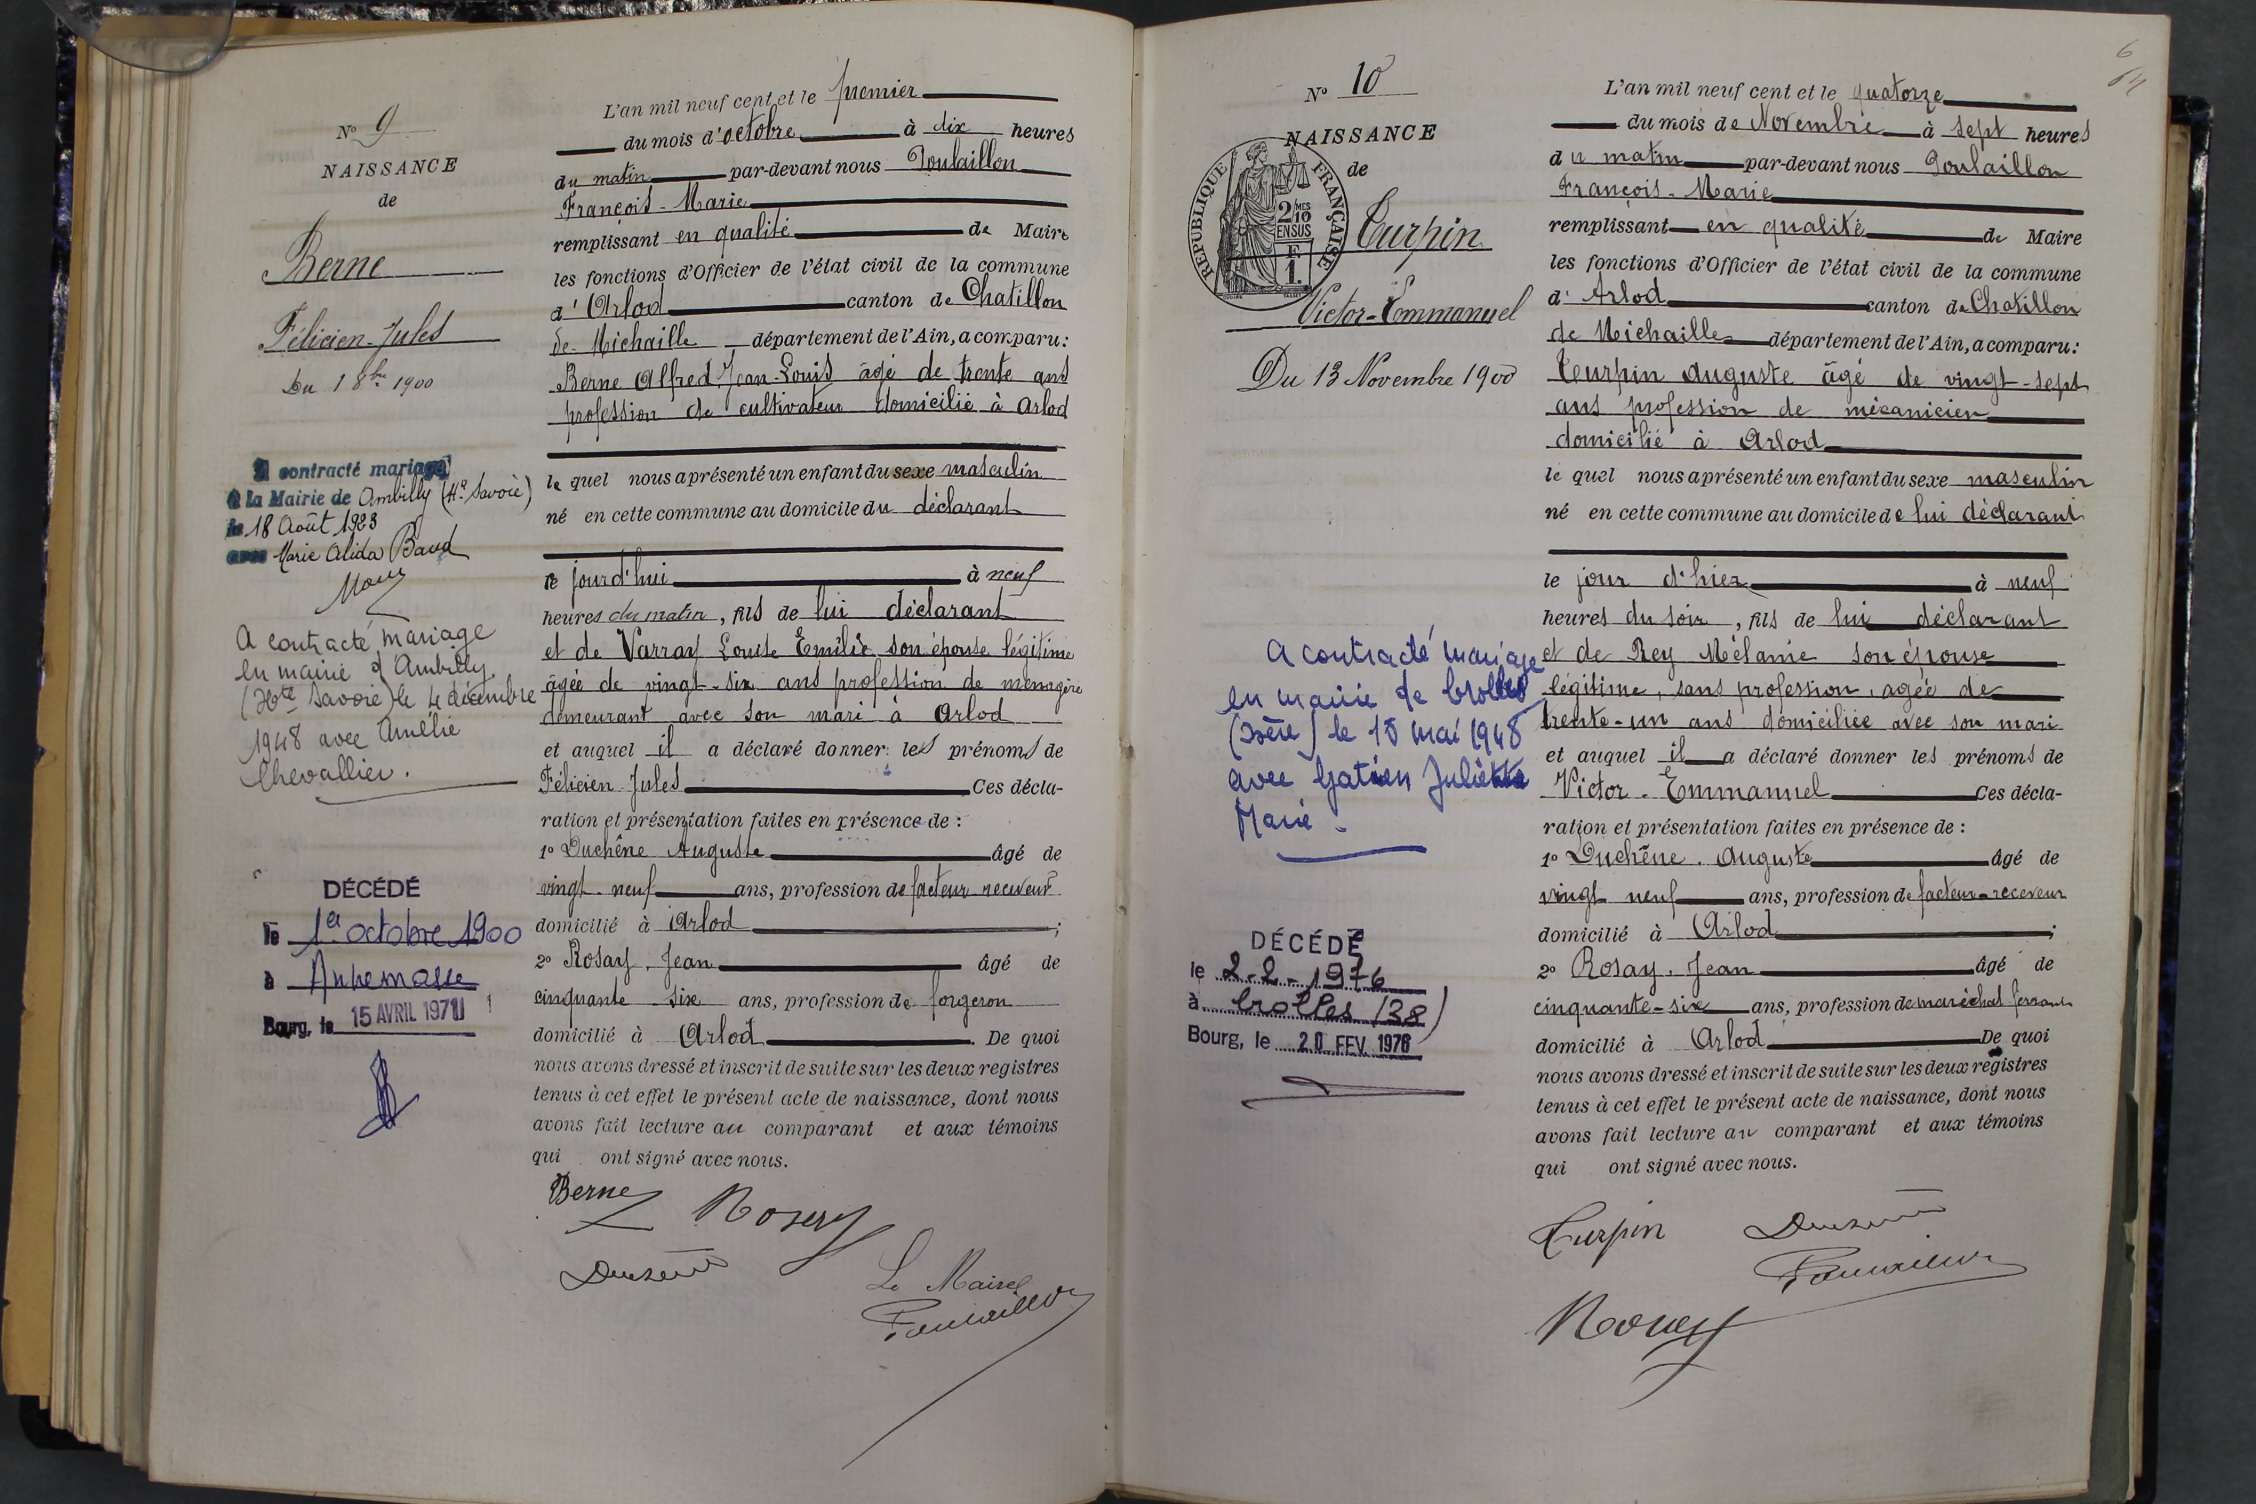 N° 9
NAISSANCE
de
Berne
Félicien-Jules
Du 1 8bre 1900
A contracté mariage
à la Mairie de Ambilly (Hte Savoie)
le 18 Août 1923
avec Marie Alida Baud
A contracté mariage
en mairie d'Ambilly
(Hte Savoie) le 4 décembre
1948 avec Amélie
Chevallier.
DÉCÉDÉ
le 1er octobre 1900
à Annemasse
Bourg, le 15 AVRIL 1971
L'an mil neuf cent et le premier
du mois d'octobre à dix heures
du matin par-devant nous Poulaillon
François-Marie
remplissant en qualité de Maire
les fonctions d'Officier de l'état civil de la commune
d'Arlod canton de Chatillon
de Michaille département de l'Ain, a comparu:
Berne Alfred Jean-Louis âgé de trente ans
profession de cultivateur domicilié à Arlod
le quel nous a présenté un enfant du sexe masculin
né en cette commune au domicile du déclarant
ce jourd'hui à neuf
heures du matin, fils de lui déclarant
et de Varray Louise Emélie son épouse légitime
âgée de vingt-six ans profession de ménagère
demeurant avec son mari à Arlod
et auquel il a déclaré donner les prénoms de
Félicien Jules Ces décla-
ration et présentation faites en présence de :
1° Duchêne Auguste âgé de
vingt-neuf ans, profession de facteur receveur
domicilié à Arlod ;
2° Rosay, Jean âgé de
cinquante six ans, profession de forgeron
domicilié à Arlod. De quoi
nous avons dressé et inscrit de suite sur les deux registres
tenus à cet effet le présent acte de naissance, dont nous
avons fait lecture au comparant et aux témoins
qui ont signé avec nous.
Berne Rosay
Le Maire
N° 10
NAISSANCE
de
RÉPUBLIQUE FRANÇAISE
2 MES
10
EN SUS
F
1.
Turpin
Victor-Emmanuel
Du 13 Novembre 1900
A contracté mariage
en mairie de Crolles
(Isère) le 15 mai 1948
avec Gatien Juliette
Marie.
DÉCÉDÉ
le 2-2-1976
à Crolles (38)
Bourg, le 20 FEV. 1976
6
L'an mil neuf cent et le quatorze
du mois de Novembre à sept heures
du matin par-devant nous Poulaillon
François-Marie
remplissant en qualité de Maire
les fonctions d'Officier de l'état civil de la commune
d'Arlod canton de Chatillon
de Michaille département de l'Ain, a comparu:
Turpin Auguste âgé de vingt-sept
ans profession de mécanicien
domicilié à Arlod
le quel nous a présenté un enfant du sexe masculin
né en cette commune au domicile de lui déclarant
le jour d'hier à neuf
heures du soir, fils de lui déclarant
et de Rey Mélanie son épouse
légitime, sans profession, agée de
trente-un ans domiciliée avec son mari
et auquel il a déclaré donner les prénoms de
Victor-Emmanuel Ces décla-
ration et présentation faites en présence de :
1° Duchêne. Auguste âgé de
vingt neuf ans, profession de facteur-receveur
domicilié à Arlod ;
2° Rosay. Jean âgé de
cinquante-six ans, profession de maréchal ferrant
domicilié à Arlod De quoi
nous avons dressé et inscrit de suite sur les deux registres
tenus à cet effet le présent acte de naissance, dont nous
avons fait lecture au comparant et aux témoins
qui ont signé avec nous.
Turpin